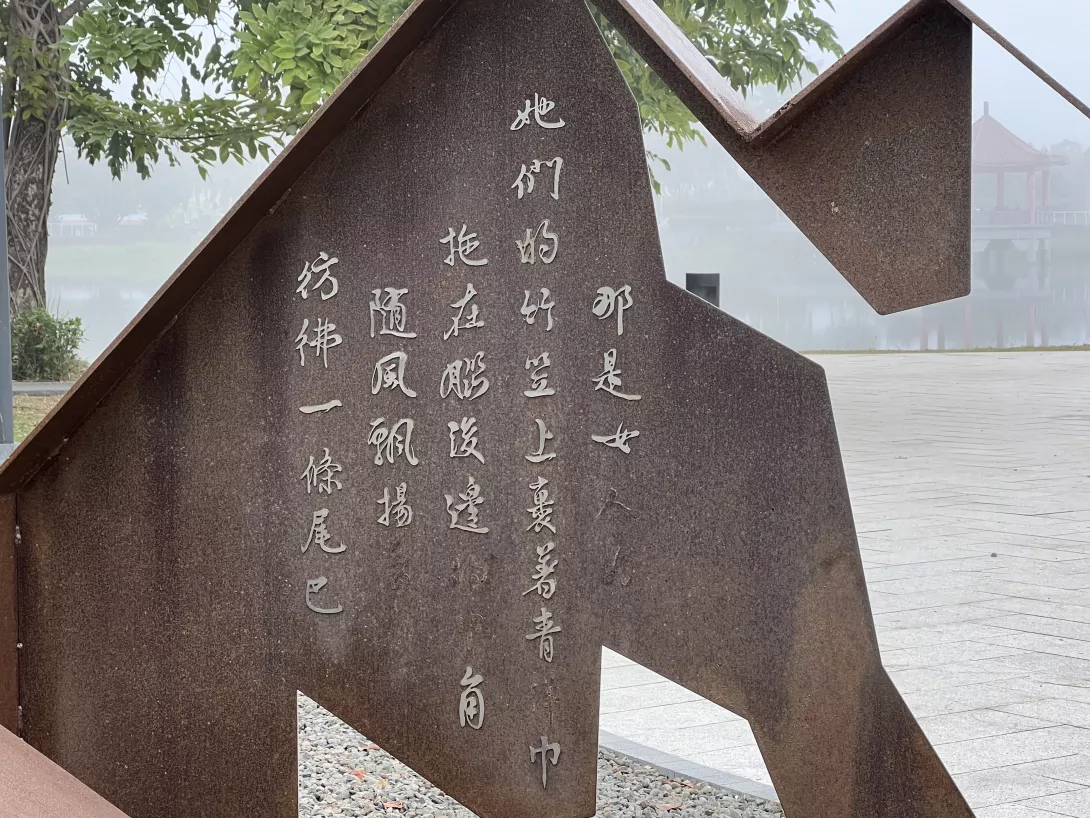 那是女人
她們的竹笠上裹著青巾
拖在腦後邊角
随風飄揚
彷彿一條尾巴